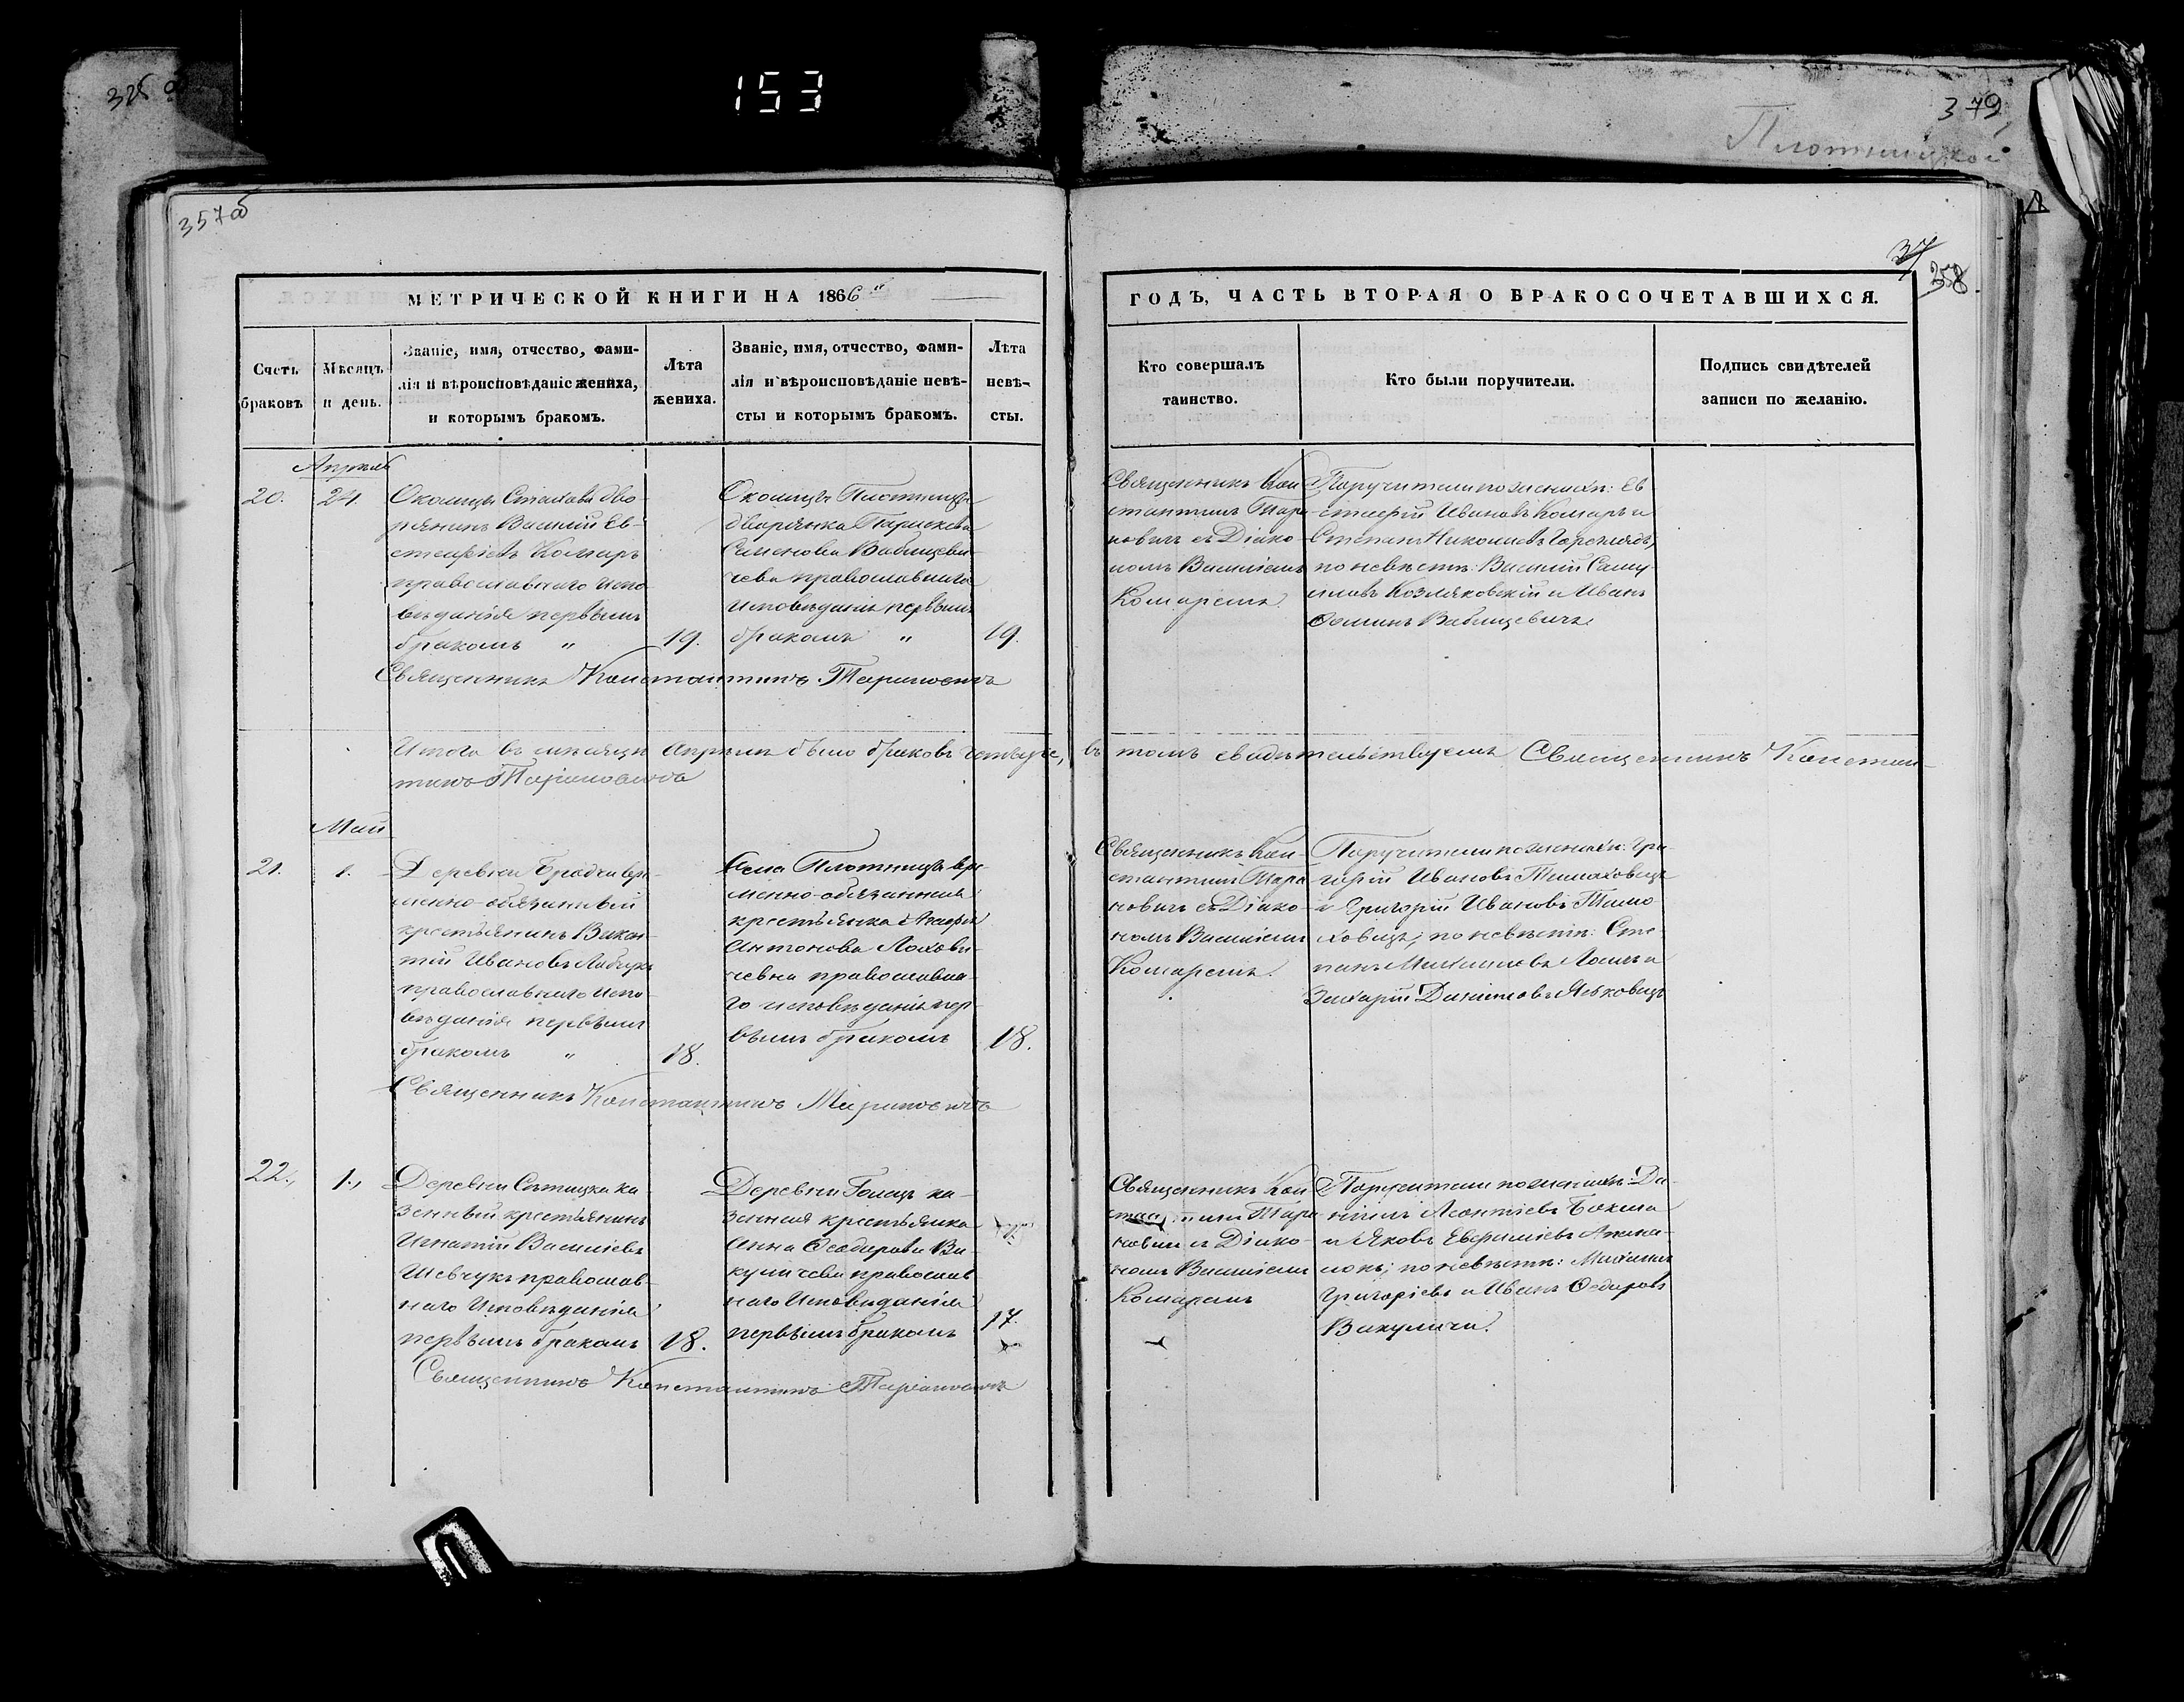 153
379
Плотницкой
357об
37
358
МЕТРИЧЕСКОЙ КНИГИ НА 1866
ГОДЪ, ЧАСТЬ ВТОРАЯ О БРАКОСОЧЕТАВШИХСЯ.
Счетъ браковъ
Мѣсяцъ и день.
Званіе, имя, отчество, фами-
лія и вѣроисповѣданіе жениха,
и которымъ бракомъ.
Лѣта жениха.
Званіе, имя, отчество, фами-
лія и вѣроисповѣданіе невѣ-
сты и которымъ бракомъ.
Лѣта невѣ-
сты.
Кто совершалъ таинство.
Кто были поручители.
Подпись свидѣтелей записи по желанію.
Апрѣль
20.
24.
Околицы Стахова дво-
рянинъ Василій Ев-
стафіевъ Комаръ
православнаго испо-
вѣданія первымъ
бракомъ "
19.
Околицы Плотницы
дворянка Параскева
Семенова Вабищеви-
чева православнаго
исповѣданія первымъ
бракомъ "
19.
Священникъ Кон-
стантинъ Тара-
новичъ съ Діако-
номъ Василіемъ
Комаремъ.
Поручители по женихѣ: Ев-
стафій Ивановъ Комаръ и
Степанъ Николаевъ
по невѣстѣ: Василій Саму-
иловъ Козляковскій и Иванъ
Ѳоминъ Вабищевичъ
Священникъ Константинъ Тарановичъ
Итого въ мѣсяцѣ Апрѣлѣ было браковъ четыре, въ томъ свидѣтельствуемъ Священникъ Констан-
тинъ Тарановичъ
Май
21.
1.
Деревни Бродча вре-
менно-обязанный
крестьянинъ Викен-
тій Ивановъ
православнаго испо-
вѣданія первымъ
бракомъ "
18.
Села Плотницы вре-
менно-обязанная
крестьянка Агафія
Антонова Лахови-
чевна православна-
го исповѣданія пер-
вымъ бракомъ
18.
Священникъ Кон-
стантинъ Тара-
новичъ съ Діако-
номъ Василіемъ
Комаремъ.
Поручители по женихѣ: Гри-
горій Ивановъ Тимоховецъ
и Григорій Ивановъ Тимо-
ховецъ; по невѣстѣ: Сте-
панъ Михайловъ и
Захарій Даниловъ Яськовецъ
Священникъ Константинъ Тарановичъ
22.
1.
Деревни Ситицка ка-
зенный крестьянинъ
Игнатій Василіевъ
Шевчукъ православ-
наго Исповѣданія
первымъ бракомъ
18.
Деревни Голецъ ка-
зенная крестьянка
Анна Ѳеодорова Ва-
куличева православ-
наго Исповѣданія
первымъ бракомъ
17.
Священникъ Кон-
стантинъ Тара-
новичъ съ Діако-
номъ Василіемъ
Комаремъ
Поручители по женихѣ: Да-
ніилъ Леонтіевъ
и Яковъ Ефремовъ
по невѣстѣ: Михаилъ
Григоріевъ и Иванъ Ѳедоровъ
Вакуличи.
Священникъ Константинъ Тарановичъ